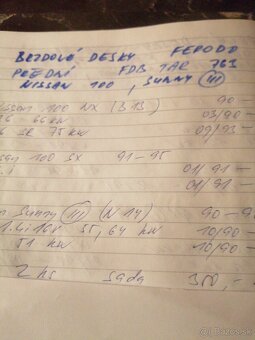 BRZDOVÉ DESKY FERODO
PŘEDNÍ FDB TAR 763
NISSAN 100, SUNNY III
ssan 100 NX (B13) 90 -
.6 66 kW 03/90 -
6 SR 75 kW 09/93 -
san 100 SX 91-95
01/91 -
01/91 -
n Sunny III (N14) 90 - 9
1.4i 16V 55, 64 kW 10/90 -
51 kW 10/90 -
2 ks sada 350,-
bazos.sk